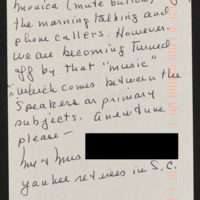 Monica (mute button)
the morning talking and
phone callers. However-
we are becoming turned
off by that "music"
which comes between the
speakers or primary
subjects. A new tune
please —
Mr & Mrs
yankee retirees in S.C.